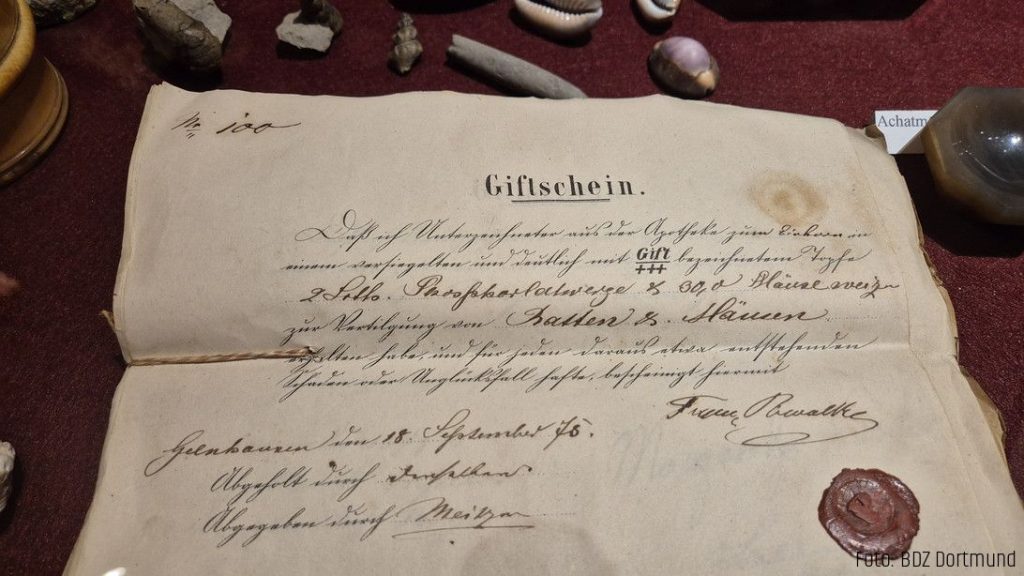 No 100
Achatm
Giftschein.
Daß ich Unterzeichneter aus der Apotheke zum Einhorn in
einem versiegelten und deutlich mit Gift +++ bezeichnetem Topfe
2 Loth. Phosphorlatwerge & 30,0 Mäuseweiz
zur Vertilgung von Ratten & Mäusen.
erhalten habe, und für jeden daraus etwa entstehenden
Schaden oder Unglücksfall hafte, bescheinigt hiermit
Franz
Gelnhausen den 18. September 75.
Abgeholt durch denselben
Abgegeben durch
Foto: BDZ Dortmund